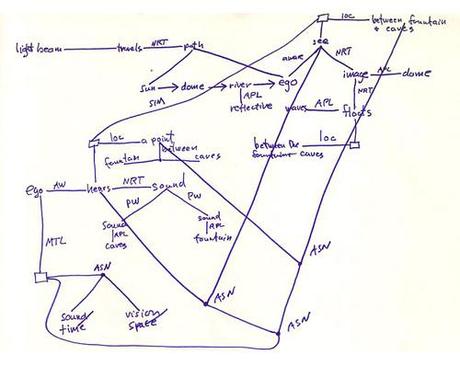 loc between fountain
& caves
see
light beam travels NRT path
aware NRT
image APL dome
sun dome river ego
NRT
APL
reflective
waves APL floats
SIM
loc a point
between
fountain caves
between the loc
fountain caves
ego AW hears NRT sound
PW PW
sound
APL
caves
sound
APL
fountain
MTL
ASN
ASN
ASN
ASN
sound
time
vision
space